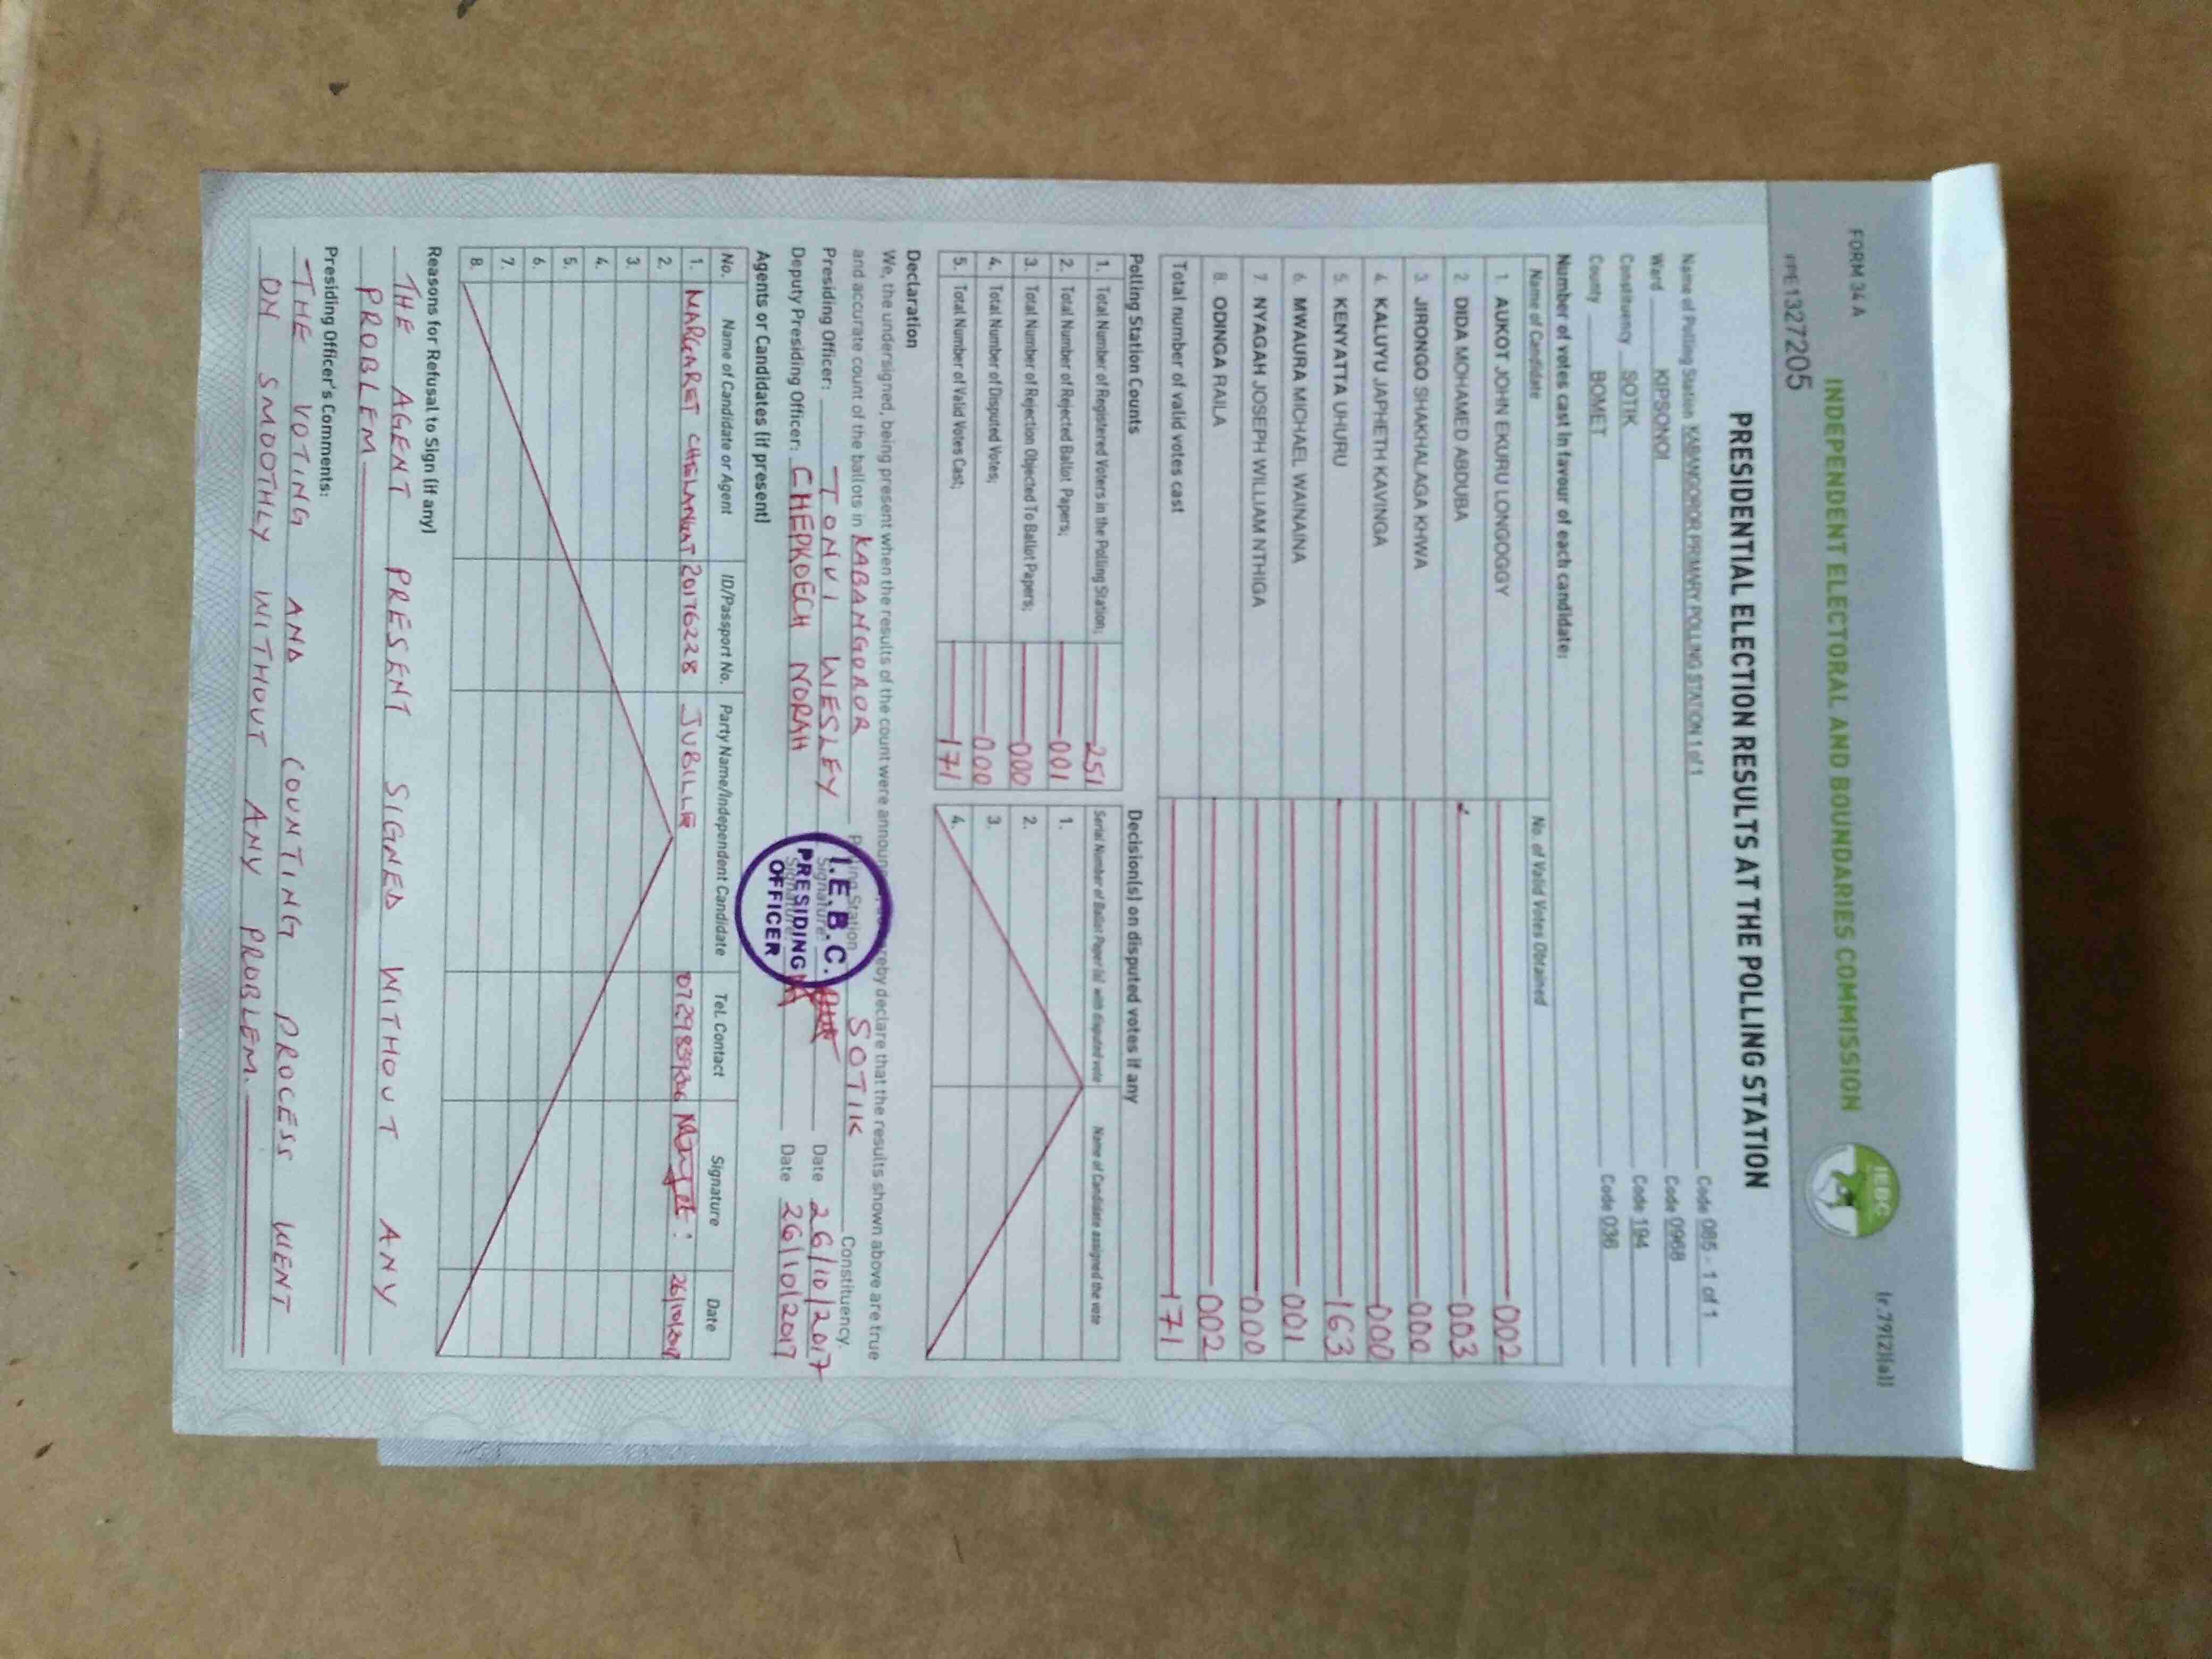 FORM 34A
(r.79(2)(a))
INDEPENDENT ELECTORAL AND BOUNDARIES COMMISSION
IEBC
PE1327205
PRESIDENTIAL ELECTION RESULTS AT THE POLLING STATION
Name of Polling Station KABANGOROR PRIMARY POLLING STATION 1 of 1 Code 085 - 1 of 1
Ward KIPSONOI Code 0968
Constituency SOTIK Code 194
County BOMET Code 036
Number of votes cast in favour of each candidate:
Name of Candidate No. of Valid Votes Obtained
1. AUKOT JOHN EKURU LONGOGGY 002
2. DIDA MOHAMED ABDUBA 003
3. JIRONGO SHAKHALAGA KHWA 000
4. KALUYU JAPHETH KAVINGA 000
5. KENYATTA UHURU 163
6. MWAURA MICHAEL WAINAINA 001
7. NYAGAH JOSEPH WILLIAM NTHIGA 000
8. ODINGA RAILA 002
Total number of valid votes cast 171
Polling Station Counts
1. Total Number of Registered Voters in the Polling Station; 251
2. Total Number of Rejected Ballot Papers; 001
3. Total Number of Rejection Objected To Ballot Papers; 000
4. Total Number of Disputed Votes; 000
5. Total Number of Valid Votes Cast; 171
Decision(s) on disputed votes if any
Serial Number of Ballot Paper (s) with disputed vote Name of Candidate assigned the vote
1.
2.
3.
4.
Declaration
We, the undersigned, being present when the results of the count were announced, hereby declare that the results shown above are true
and accurate count of the ballots in KABANGOROR Polling Station SOTIK Constituency.
Presiding Officer: TONUI WESLEY Signature: Date 26/10/2017
Deputy Presiding Officer: CHEPKOECH NORAH Signature: Date 26/10/2017
I.E.B.C.
PRESIDING
OFFICER
Agents or Candidates (if present)
No. Name of Candidate or Agent ID/Passport No. Party Name/Independent Candidate Tel. Contact Signature Date
1. MARGARET 20176228 JUBILLE 26/10/2017
2.
3.
4.
5.
6.
7.
8.
Reasons for Refusal to Sign (if any)
THE AGENT PRESENT SIGNED WITHOUT ANY
PROBLEM
Presiding Officer's Comments:
THE VOTING AND COUNTING PROCESS WENT
ON SMOOTHLY WITHOUT ANY PROBLEM.